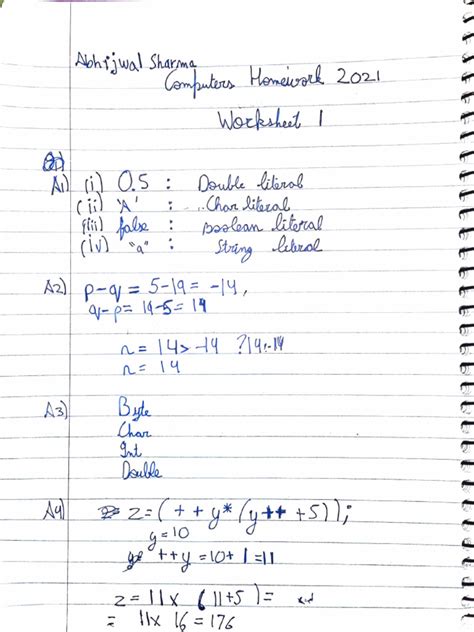 Abhijwal Sharma
Computers Homework 2021
Worksheet 1
A1) (i) 0.5 : Double literal
(ii) 'A' : Char literal
(iii) false : boolean literal
(iv) "a" : String literal
A2) p-q = 5-19 = -14,
q-p = 19-5 = 14
n = 14 > -14 ? 14 : -14
n = 14
A3) Byte
Char
Int
Double
A4) z = (++y*(y++ +5));
y=10
++y = 10+1 = 11
z = 11 x (11+5) =
= 11 x 16 = 176